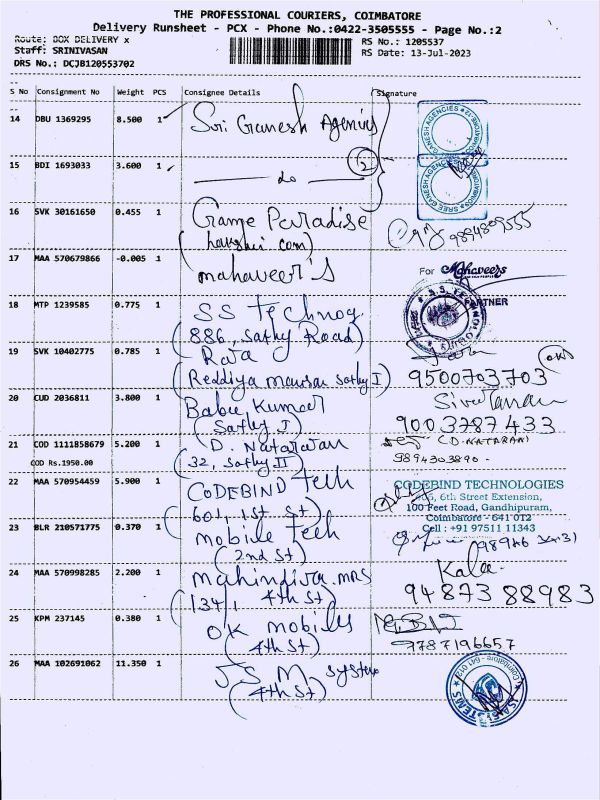 THE PROFESSIONAL COURIERS, COIMBATORE
Delivery Runsheet - PCX - Phone No.:0422-3505555 - Page No.:2
Route: BOX DELIVERY x
RS No.: 1205537
Staff: SRINIVASAN
RS Date: 13-Jul-2023
DRS No.: DCJB120553702
S No Consignment No Weight PCS Consignee Details Signature
14 DBU 1369295 8.500 1 Sri Ganesh Agencies
15 BDI 1693033 3.600 1 do 2
16 SVK 30161650 0.455 1 Game Paradise
9894809555
17 MAA 570679866 -0.005 1 mahaveer's
For Mahaveers
PARTNER
18 MTP 1239585 0.775 1 SS Technog.
(886, Sathy Road)
19 SVK 10402775 0.785 1 Raja
(Reddiya Sathy I)
9500703703
20 CUD 2036811 3.800 1 Babu Kumar
(Sathy I)
9003787433
21 COD 1111858679 5.200 1 D. Natarajan
(D.NATARAJ
COD Rs.1950.00 32, Sathy II)
9894303890 -
22 MAA 570954459 5.900 1 CODEBIND Tech
(601, 1st St)
CODEBIND TECHNOLOGIES
6th Street Extension,
100 Feet Road, Gandhipuram,
Coimbatore - 641 012
Cell : +91 97511 11343
23 BLR 210571775 0.370 1 mobile Tech
(2nd St)
24 MAA 570998285 2.200 1 mahindira. mrs
(134, 4th St)
Kala
94873 88983
25 KPM 237145 0.380 1 OK mobiles
(4th St)
9787196657
26 MAA 102691062 11.350 1 JSM System
(4th St)